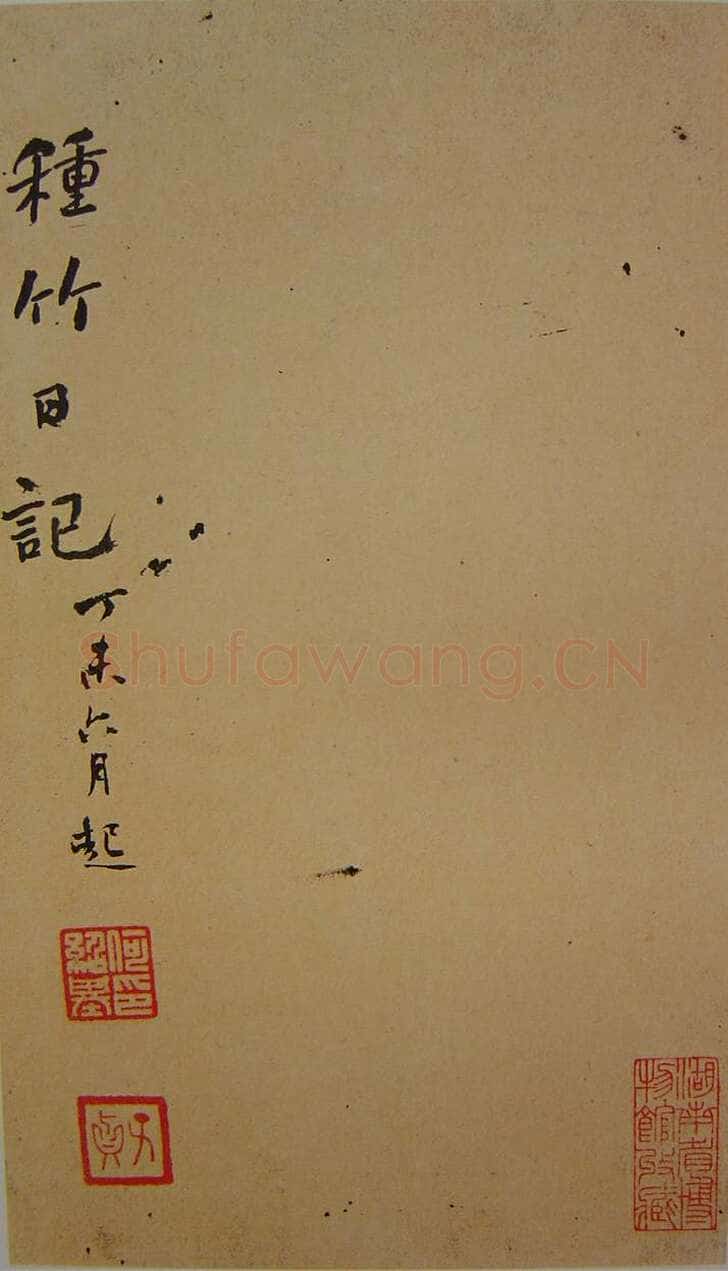 種竹日記
丁未六月起
何紹基印
子貞
湖南省博物館收藏
Shufawang.CN